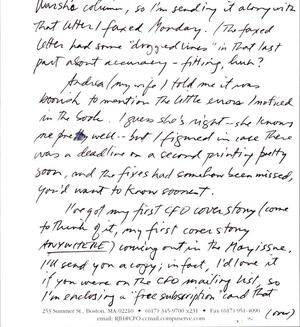 column, so I'm sending it along with
that letter I faxed Monday. (The faxed
letter had some "dropped lines" in that last
part about accuracy - fitting, huh?
Andrea (my wife) told me it was
boorish to mention the little errors I noticed
in the book. I guess she's right - she knows
me pretty well - but I figured in case there
was a deadline on a second printing pretty
soon, and the fixes had somehow been missed,
you'd want to know soonest.
I've got my first CFO cover story (come
to think of it, my first cover story
ANYWHERE) coming out in the May issue.
I'll send you a copy; in fact, I'd love it
if you were on the CFO mailing list, so
I'm enclosing a "free subscription" card that
253 Summer St., Boston, MA 02210 • (617) 345-9700 x231 • Fax (617) 951-4090
email: RJH@CFO.ccmail.compuserve.com
(over)